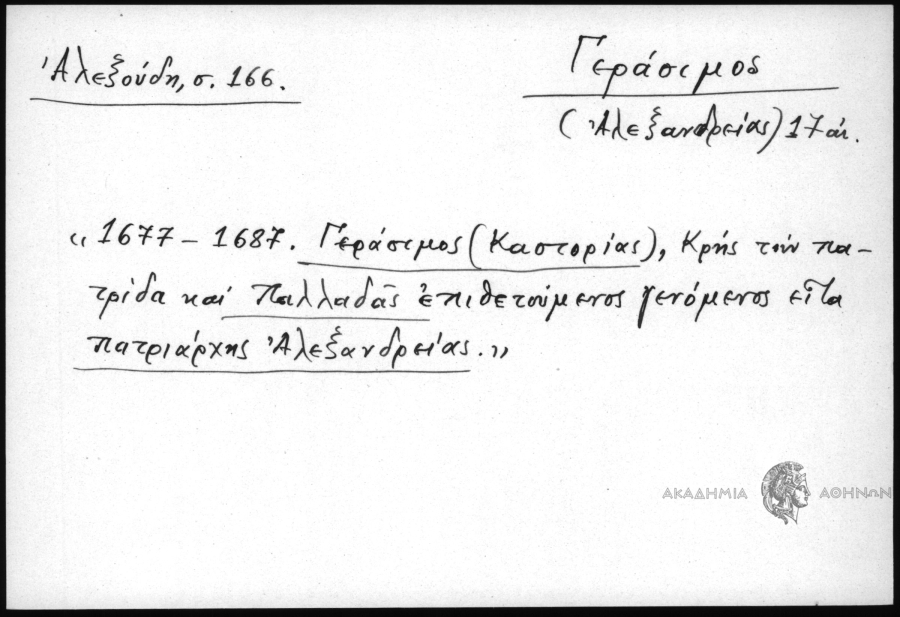 Ἀλεξούδη, σ. 166.
Γεράσιμος
(Ἀλεξανδρείας) 17 αἰ.
«1677 – 1687. Γεράσιμος (Καστορίας), Κρής τήν πα-
τρίδα καί Παλλαδᾶς ἐπιθετούμενος γενόμενος εἶτα
πατριάρχης Ἀλεξανδρείας.»
ΑΚΑΔΗΜΙΑ ΑΘΗΝΩΝ